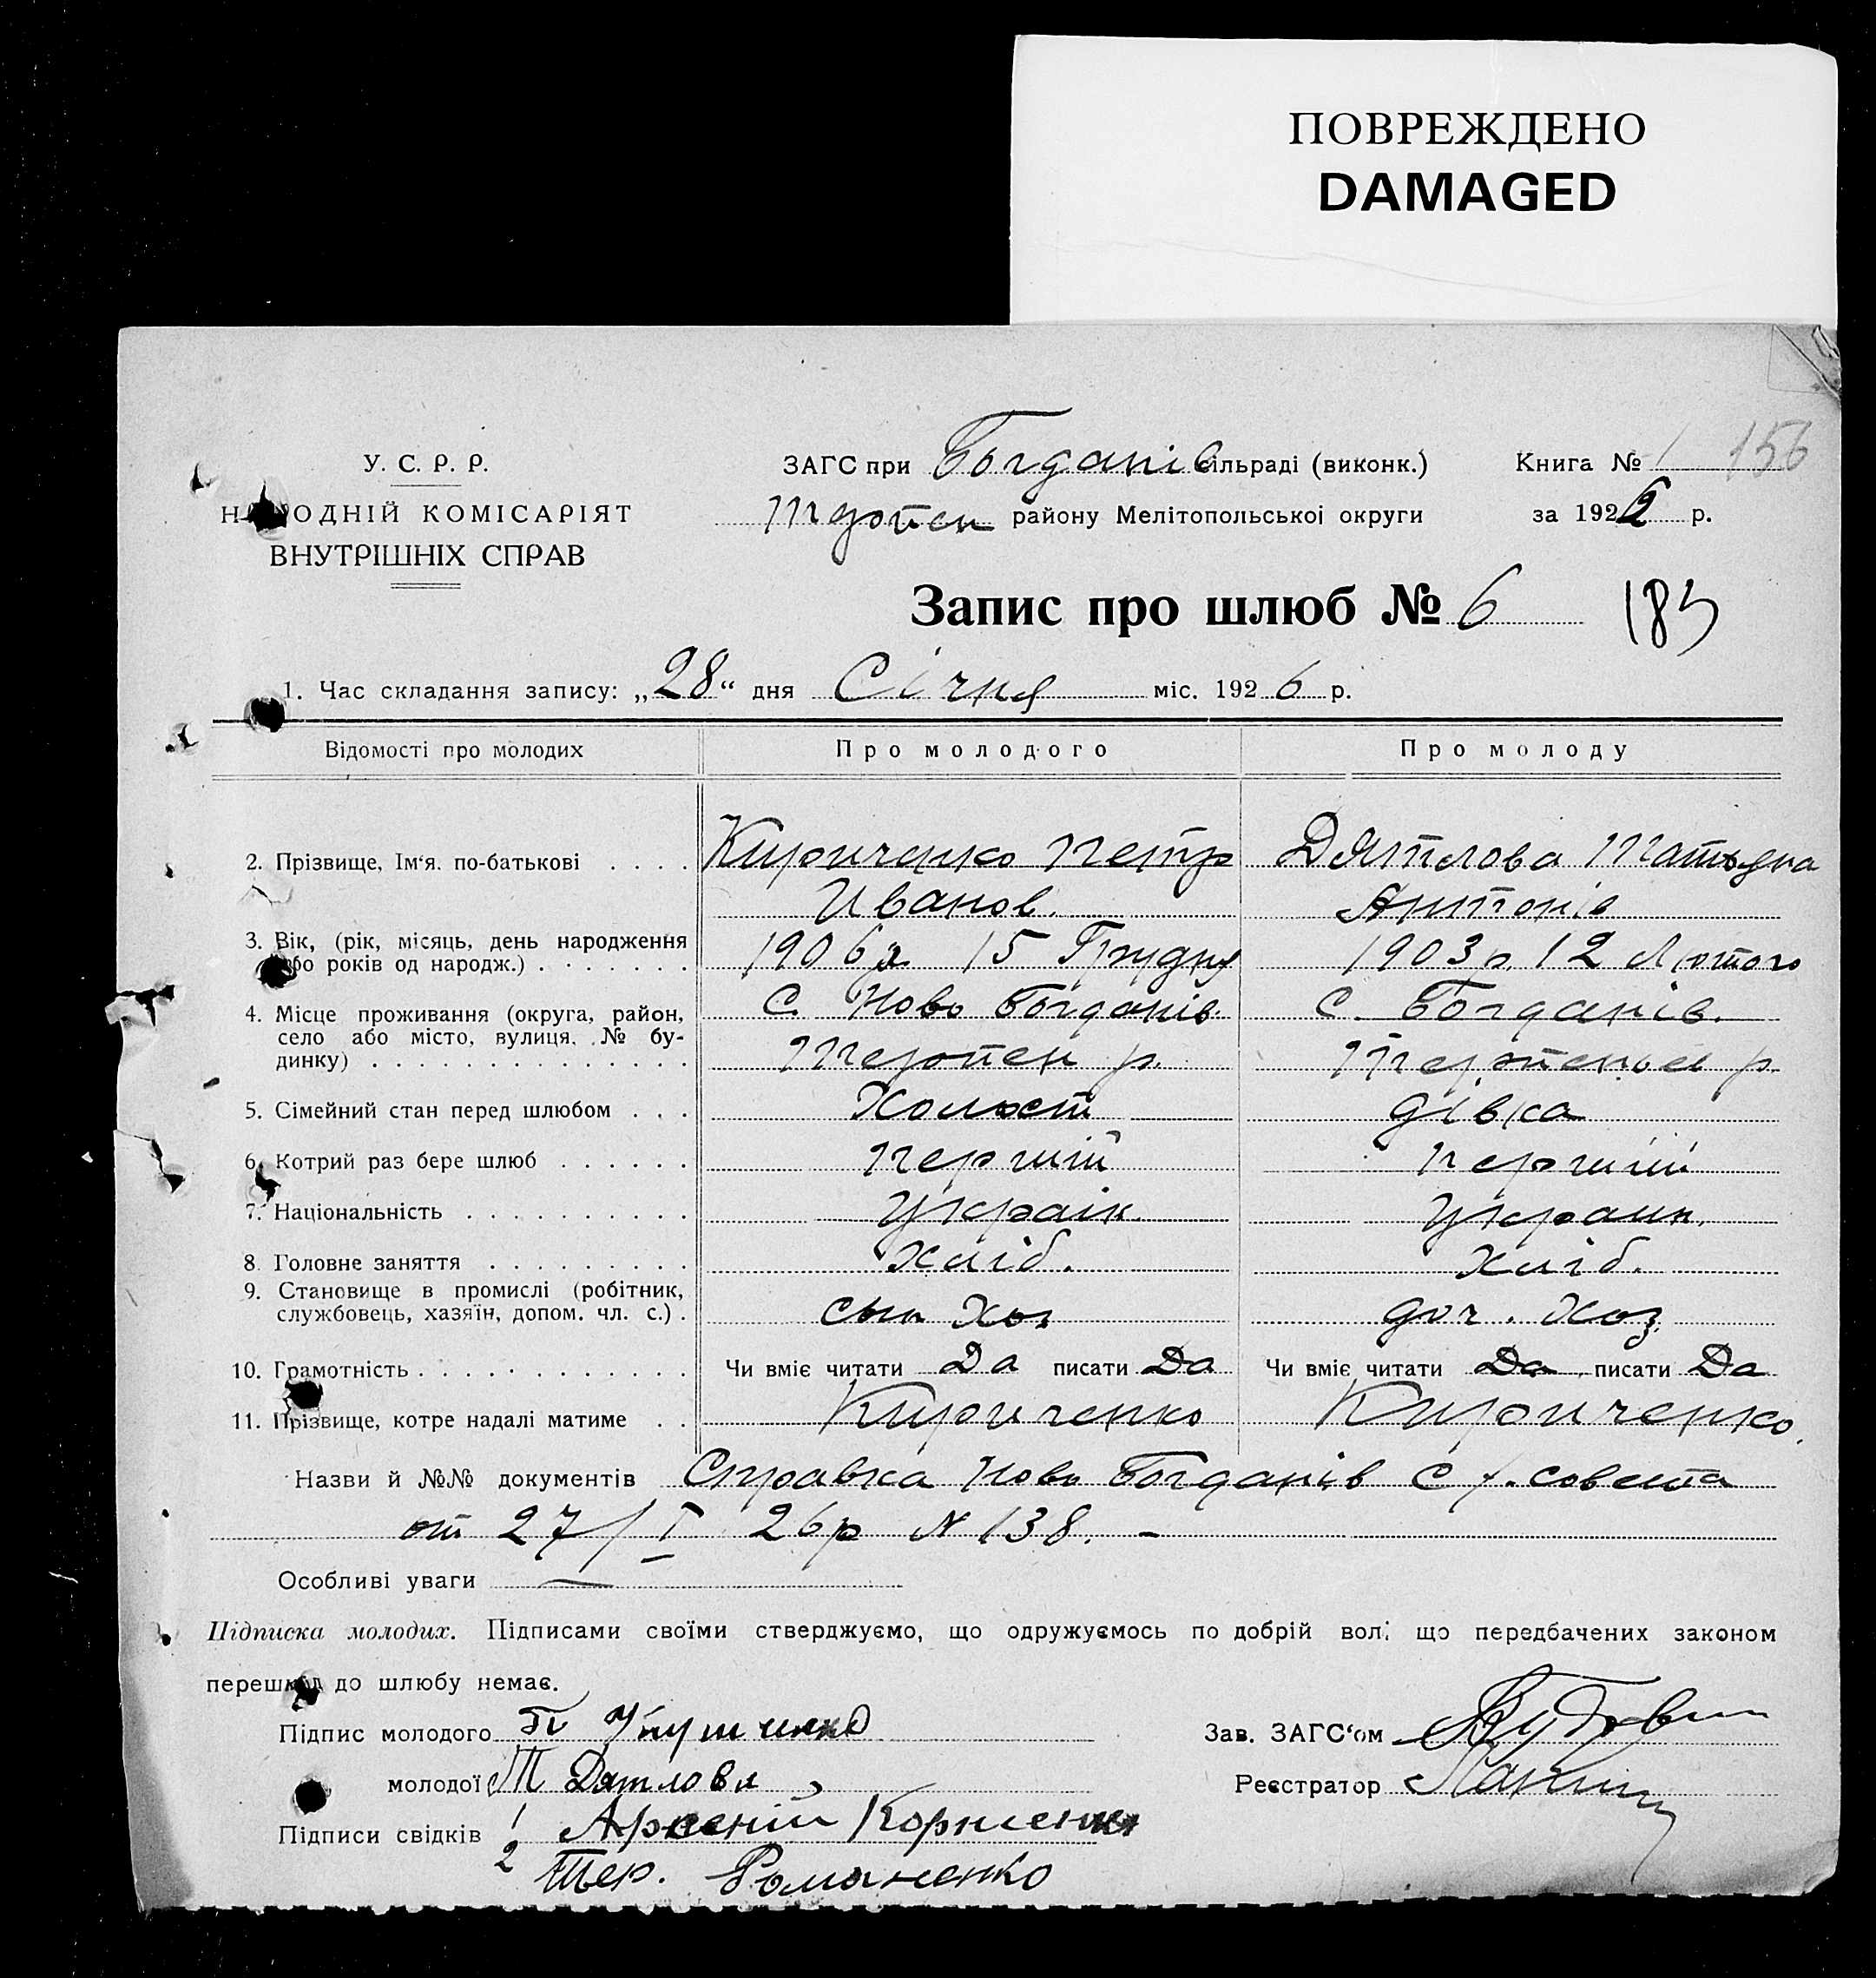 ПОВРЕЖДЕНО
DAMAGED
У. С. Р. Р.
НАРОДНІЙ КОМІСАРІЯТ
ВНУТРІШНІХ СПРАВ
ЗАГС при Богданів сільраді (виконк.)
району Мелітопольської округи
Книга № 1 156
за 1926 р.
Запис про шлюб № 6 183
1. Час складання запису: „28“ дня Січня міс. 1926 р.
Відомості про молодих Про молодого Про молоду
2. Прізвище, Ім'я. по-батькові . . . . Кириченко Петр Дятлова Татьяна
Иванов. Антонів
3. Вік, (рік, місяць, день народження
або років од народж.) . . . . . . . 1906 р 15 Грудня 1903 р. 12 Лютого
4. Місце проживання (округа, район,
село або місто, вулиця, № бу-
динку) . . . . . . . . . . . . . .
С. Ново Богданів. С. Богданів.
Терпен р. р.
5. Сімейний стан перед шлюбом . . . Холост дівка
6. Котрий раз бере шлюб . . . . . . Перший перший
7. Національність . . . . . . . . . . Украін. Украин.
8. Головне заняття . . . . . . . . . Хліб. Хліб.
9. Становище в промислі (робітник,
службовець, хазяїн, допом. чл. с.) . сын Хоз доч. Хоз.
10. Грамотність . . . . . . . . . . . . Чи вміє читати Да писати Да Чи вміє читати Да писати Да
11. Прізвище, котре надалі матиме . . Кириченко Кириченко.
Назви й №№ документів Справка Ново Богданів с/совета
от 27/I 26 р N 138. –
Особливі уваги —
Підписка молодих. Підписами своїми стверджуємо, що одружуємось по добрій волі що передбачених законом
перешкод до шлюбу немає.
Підпис молодого П
молодої Т Дятлова
Підписи свідків 1 Арсеній Корниенко
2 Тер. Романенко
Зав. ЗАГС'ом
Реєстратор